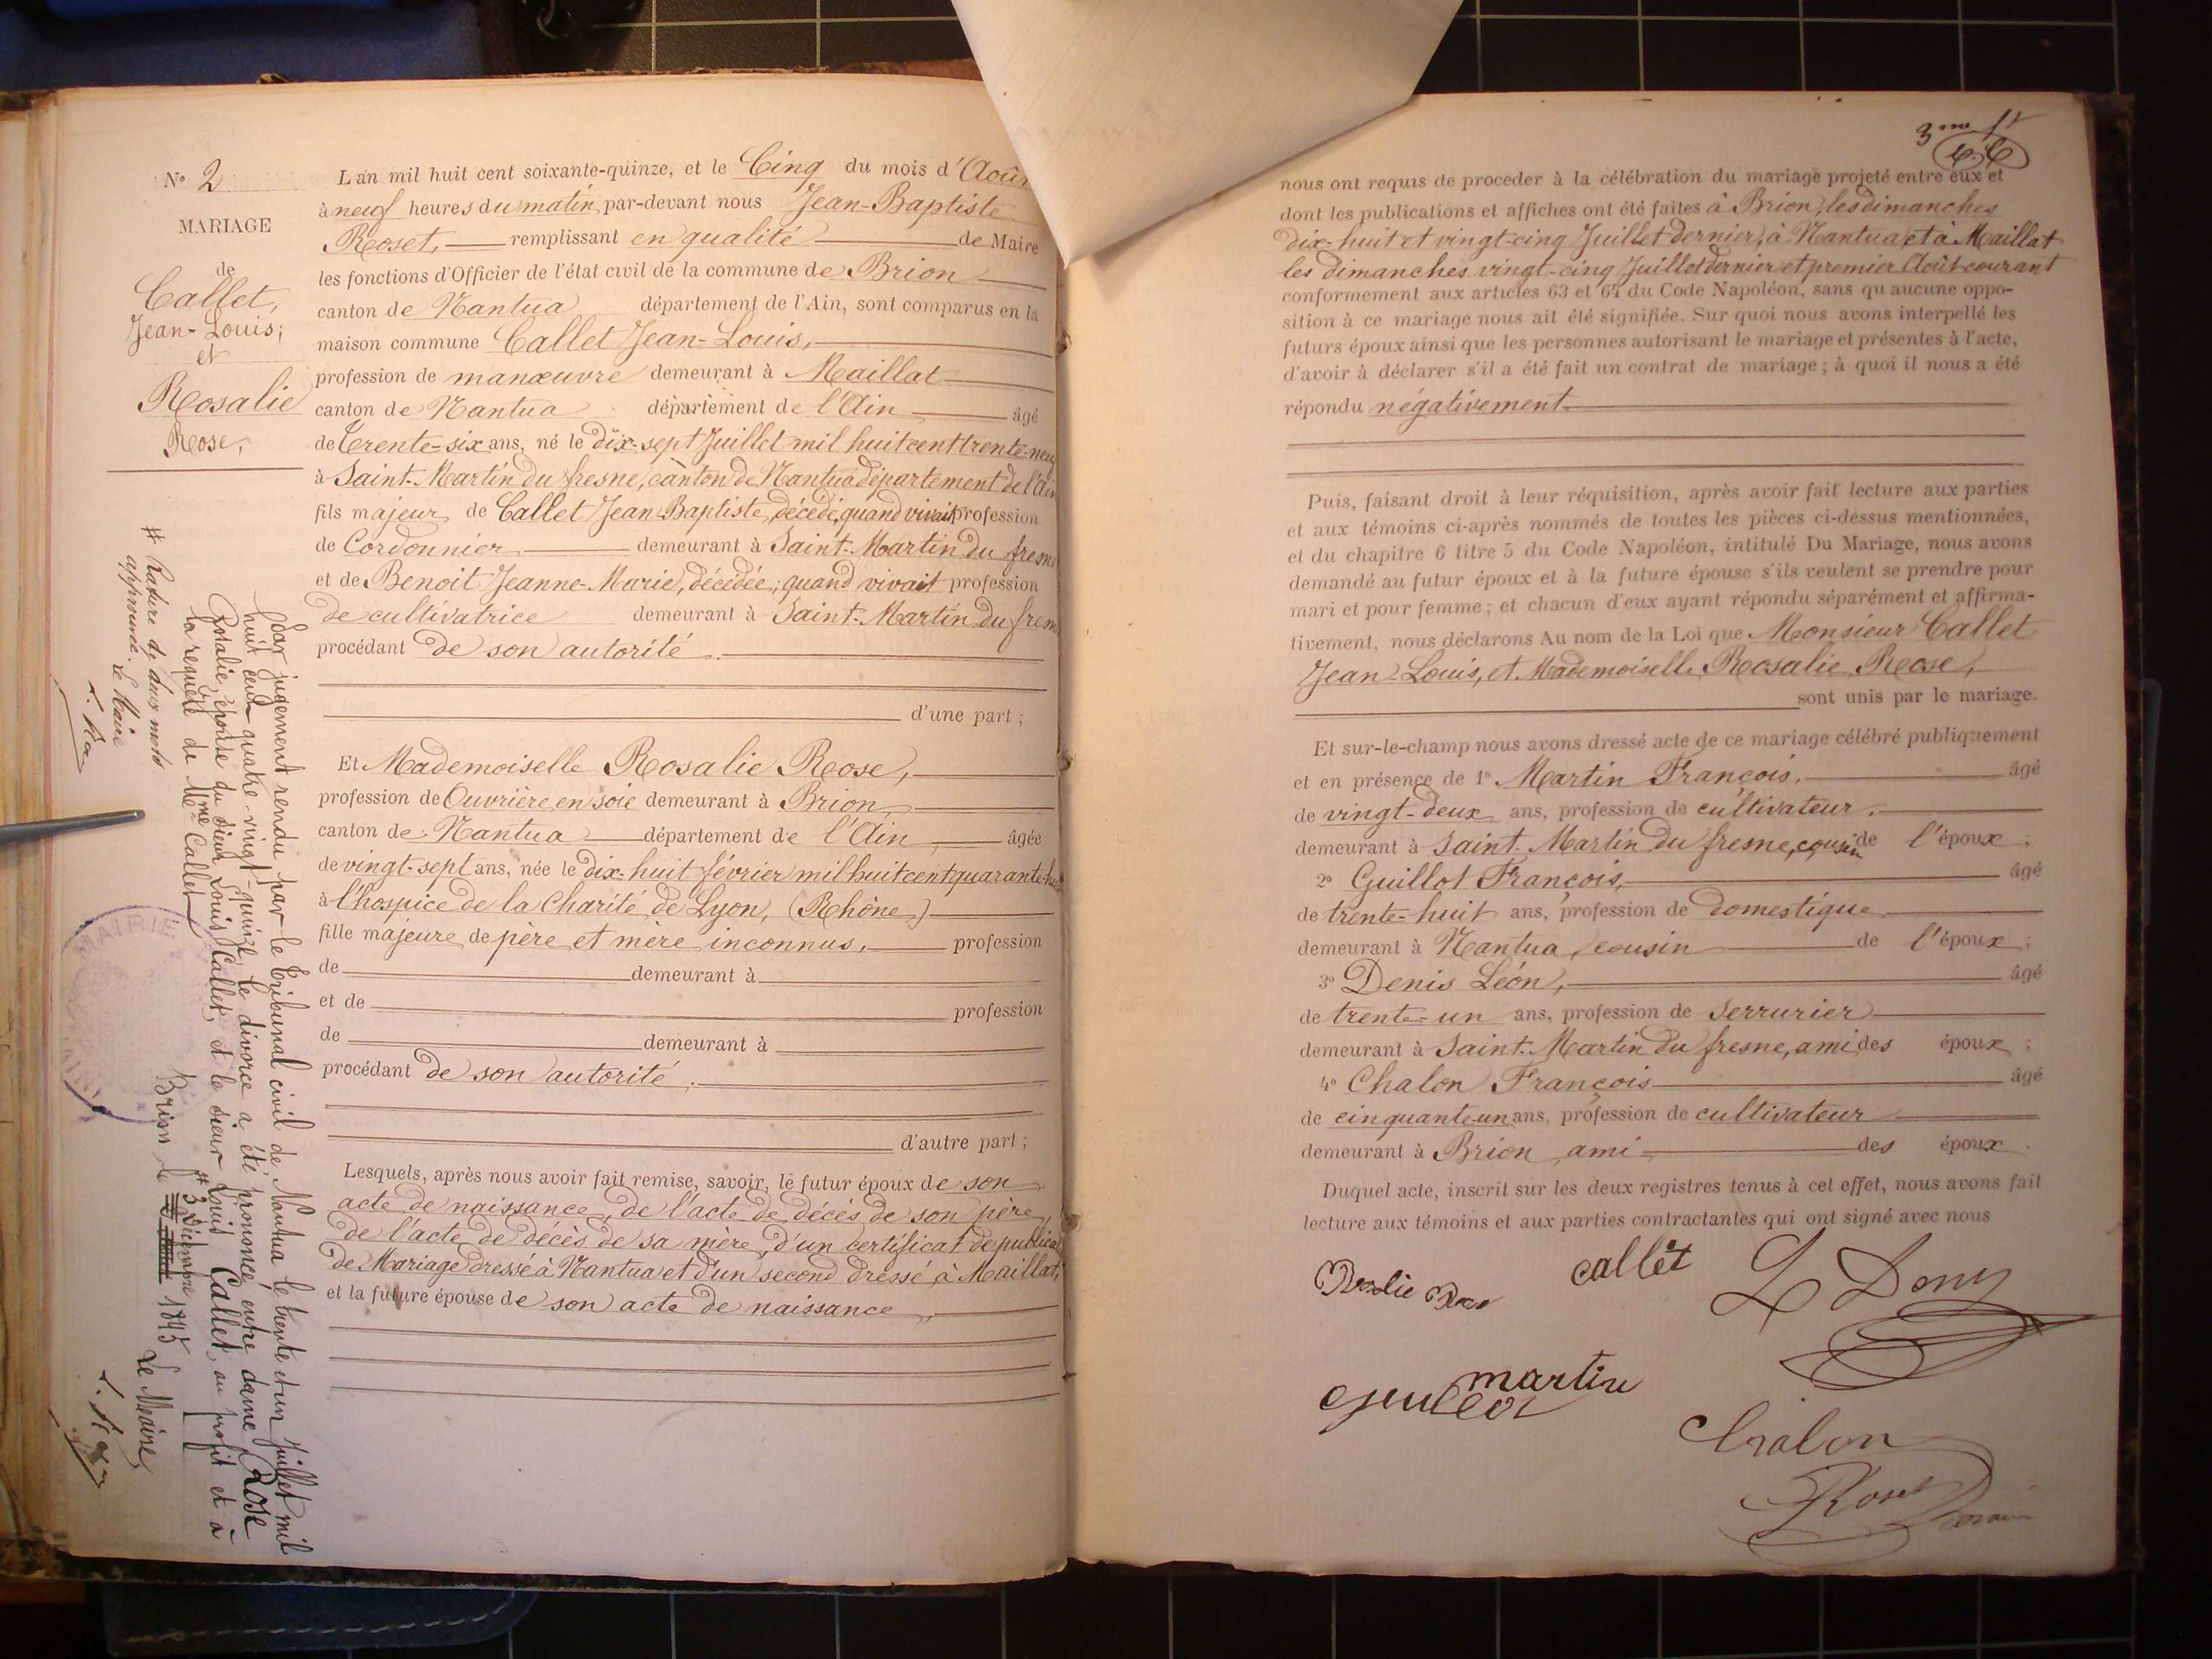 N° 2
MARIAGE
de
Callet,
Jean-Louis;
et
Rosalie
Rose,
L'an mil huit cent soixante-quinze, et le Cinq du mois d'Août
à neuf heures du matin, par-devant nous Jean-Baptiste
Roset, remplissant en qualité de Maire
les fonctions d'Officier de l'état civil de la commune de Brion
canton de Nantua département de l'Ain, sont comparus en la
maison commune Callet Jean-Louis,
profession de manœuvre demeurant à Maillat
canton de Nantua département de l'Ain âgé
de Trente-six ans, né le dix-sept Juillet mil huit cent trente-neuf
à Saint-Martin du fresne, canton de Nantua département de l'Ain
fils majeur de Callet Jean-Baptiste, décédé, quand vivait profession
de Cordonnier demeurant à Saint-Martin du fresne
et de Benoit Jeanne-Marie, décédée; quand vivait profession
de cultivatrice demeurant à Saint-Martin du fresne
procédant de son autorité
d'une part;
Et Mademoiselle Rosalie Rose,
profession de Ouvrière en soie demeurant à Brion
canton de Nantua département de l'Ain âgée
de vingt-sept ans, née le dix-huit février mil huit cent quarante-huit
à l'hospice de la Charité de Lyon, (Rhône)
fille majeure de père et mère inconnus, profession
de demeurant à
et de profession
de demeurant à
procédant de son autorité.
d'autre part;
Lesquels, après nous avoir fait remise, savoir, le futur époux de son
acte de naissance, de l'acte de décès de son père,
de l'acte de décès de sa mère, d'un certificat de publication
de Mariage dressé à Nantua et d'un second dressé à Maillat,
et la future épouse de son acte de naissance
Par jugement rendu par le Tribunal civil de Nantua le trente et un juillet mil
huit cent quatre-vingt-quinze, le divorce a été prononcé entre dame Rose
Rosalie, épouse du sieur Louis Callet, et le sieur Louis Callet, au profit et à
la requête de Mme Callet
Brion le # 3 Décembre 1895 Le Maire,
# Rature de deux mots
approuvée. Le Maire
MAIRIE
3me
nous ont requis de procéder à la célébration du mariage projeté entre eux et
dont les publications et affiches ont été faites à Brion, les dimanches
dix-huit et vingt-cinq Juillet dernier, à Nantua et à Maillat
les dimanches vingt-cinq Juillet dernier et premier Août courant
conformément aux articles 63 et 64 du Code Napoléon, sans qu'aucune oppo-
sition à ce mariage nous ait été signifiée. Sur quoi nous avons interpellé les
futurs époux ainsi que les personnes autorisant le mariage et présentes à l'acte,
d'avoir à déclarer s'il a été fait un contrat de mariage; à quoi il nous a été
répondu négativement
Puis, faisant droit à leur réquisition, après avoir fait lecture aux parties
et aux témoins ci-après nommés de toutes les pièces ci-dessus mentionnées,
et du chapitre 6 titre 5 du Code Napoléon, intitulé Du Mariage, nous avons
demandé au futur époux et à la future épouse s'ils veulent se prendre pour
mari et pour femme; et chacun d'eux ayant répondu séparément et affirma-
tivement, nous déclarons Au nom de la Loi que Monsieur Callet
Jean-Louis, et Mademoiselle Rosalie Rose,
sont unis par le mariage.
Et sur-le-champ nous avons dressé acte de ce mariage célébré publiquement
et en présence de 1° Martin François, âgé
de vingt-deux ans, profession de cultivateur.
demeurant à Saint-Martin du fresne, cousin de l'époux;
2° Guillot François, âgé
de trente-huit ans, profession de domestique
demeurant à Nantua, cousin de l'époux;
3° Denis Léon, âgé
de trente-un ans, profession de serrurier
demeurant à Saint-Martin du fresne, ami des époux;
4° Chalon François âgé
de cinquante-un ans, profession de cultivateur
demeurant à Brion ami des époux.
Duquel acte, inscrit sur les deux registres tenus à cet effet, nous avons fait
lecture aux témoins et aux parties contractantes qui ont signé avec nous
callet
martin
Chalon
Roset